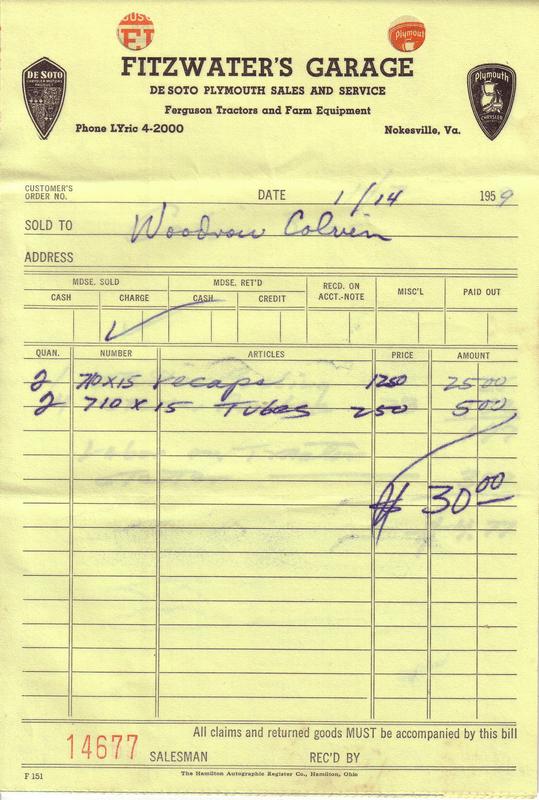 Plymouth
FITZWATER'S GARAGE
DE SOTO PLYMOUTH SALES AND SERVICE
Ferguson Tractors and Farm Equipment
DE SOTO
CHRYSLER MOTORS
PRODUCT
Plymouth
CHRYSLER
Phone LYric 4-2000 Nokesville, Va.
CUSTOMER'S
ORDER NO. DATE 1/14 1959
SOLD TO Woodrow Colvin
ADDRESS
MDSE. SOLD MDSE. RET'D RECD. ON ACCT.-NOTE MISC'L PAID OUT
CASH CHARGE CASH CREDIT
QUAN. NUMBER ARTICLES PRICE AMOUNT
2 710x15 recaps 1250 2500
2 710 x 15 Tubes 250 500
$ 30.00
All claims and returned goods MUST be accompanied by this bill
14677 SALESMAN REC'D BY
F 151 The Hamilton Autographic Register Co., Hamilton, Ohio